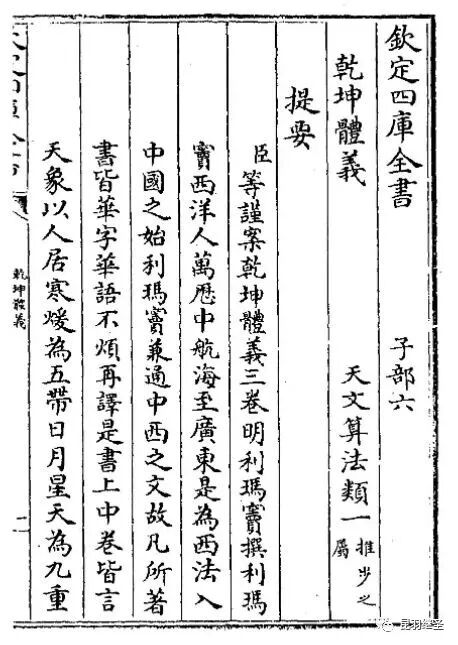 欽定四庫全書　子部六
乾坤體義　天文算法類一推步之屬
提要
臣等謹案乾坤體義三卷明利瑪竇撰利瑪
竇西洋人萬歴中航海至廣東是為西法入
中國之始利瑪竇兼通中西之文故凡所著
書皆華字華語不煩再譯是書上中卷皆言
天象以人居寒煖為五帶日月星天為九重
乾坤體義
二
昆羽继圣